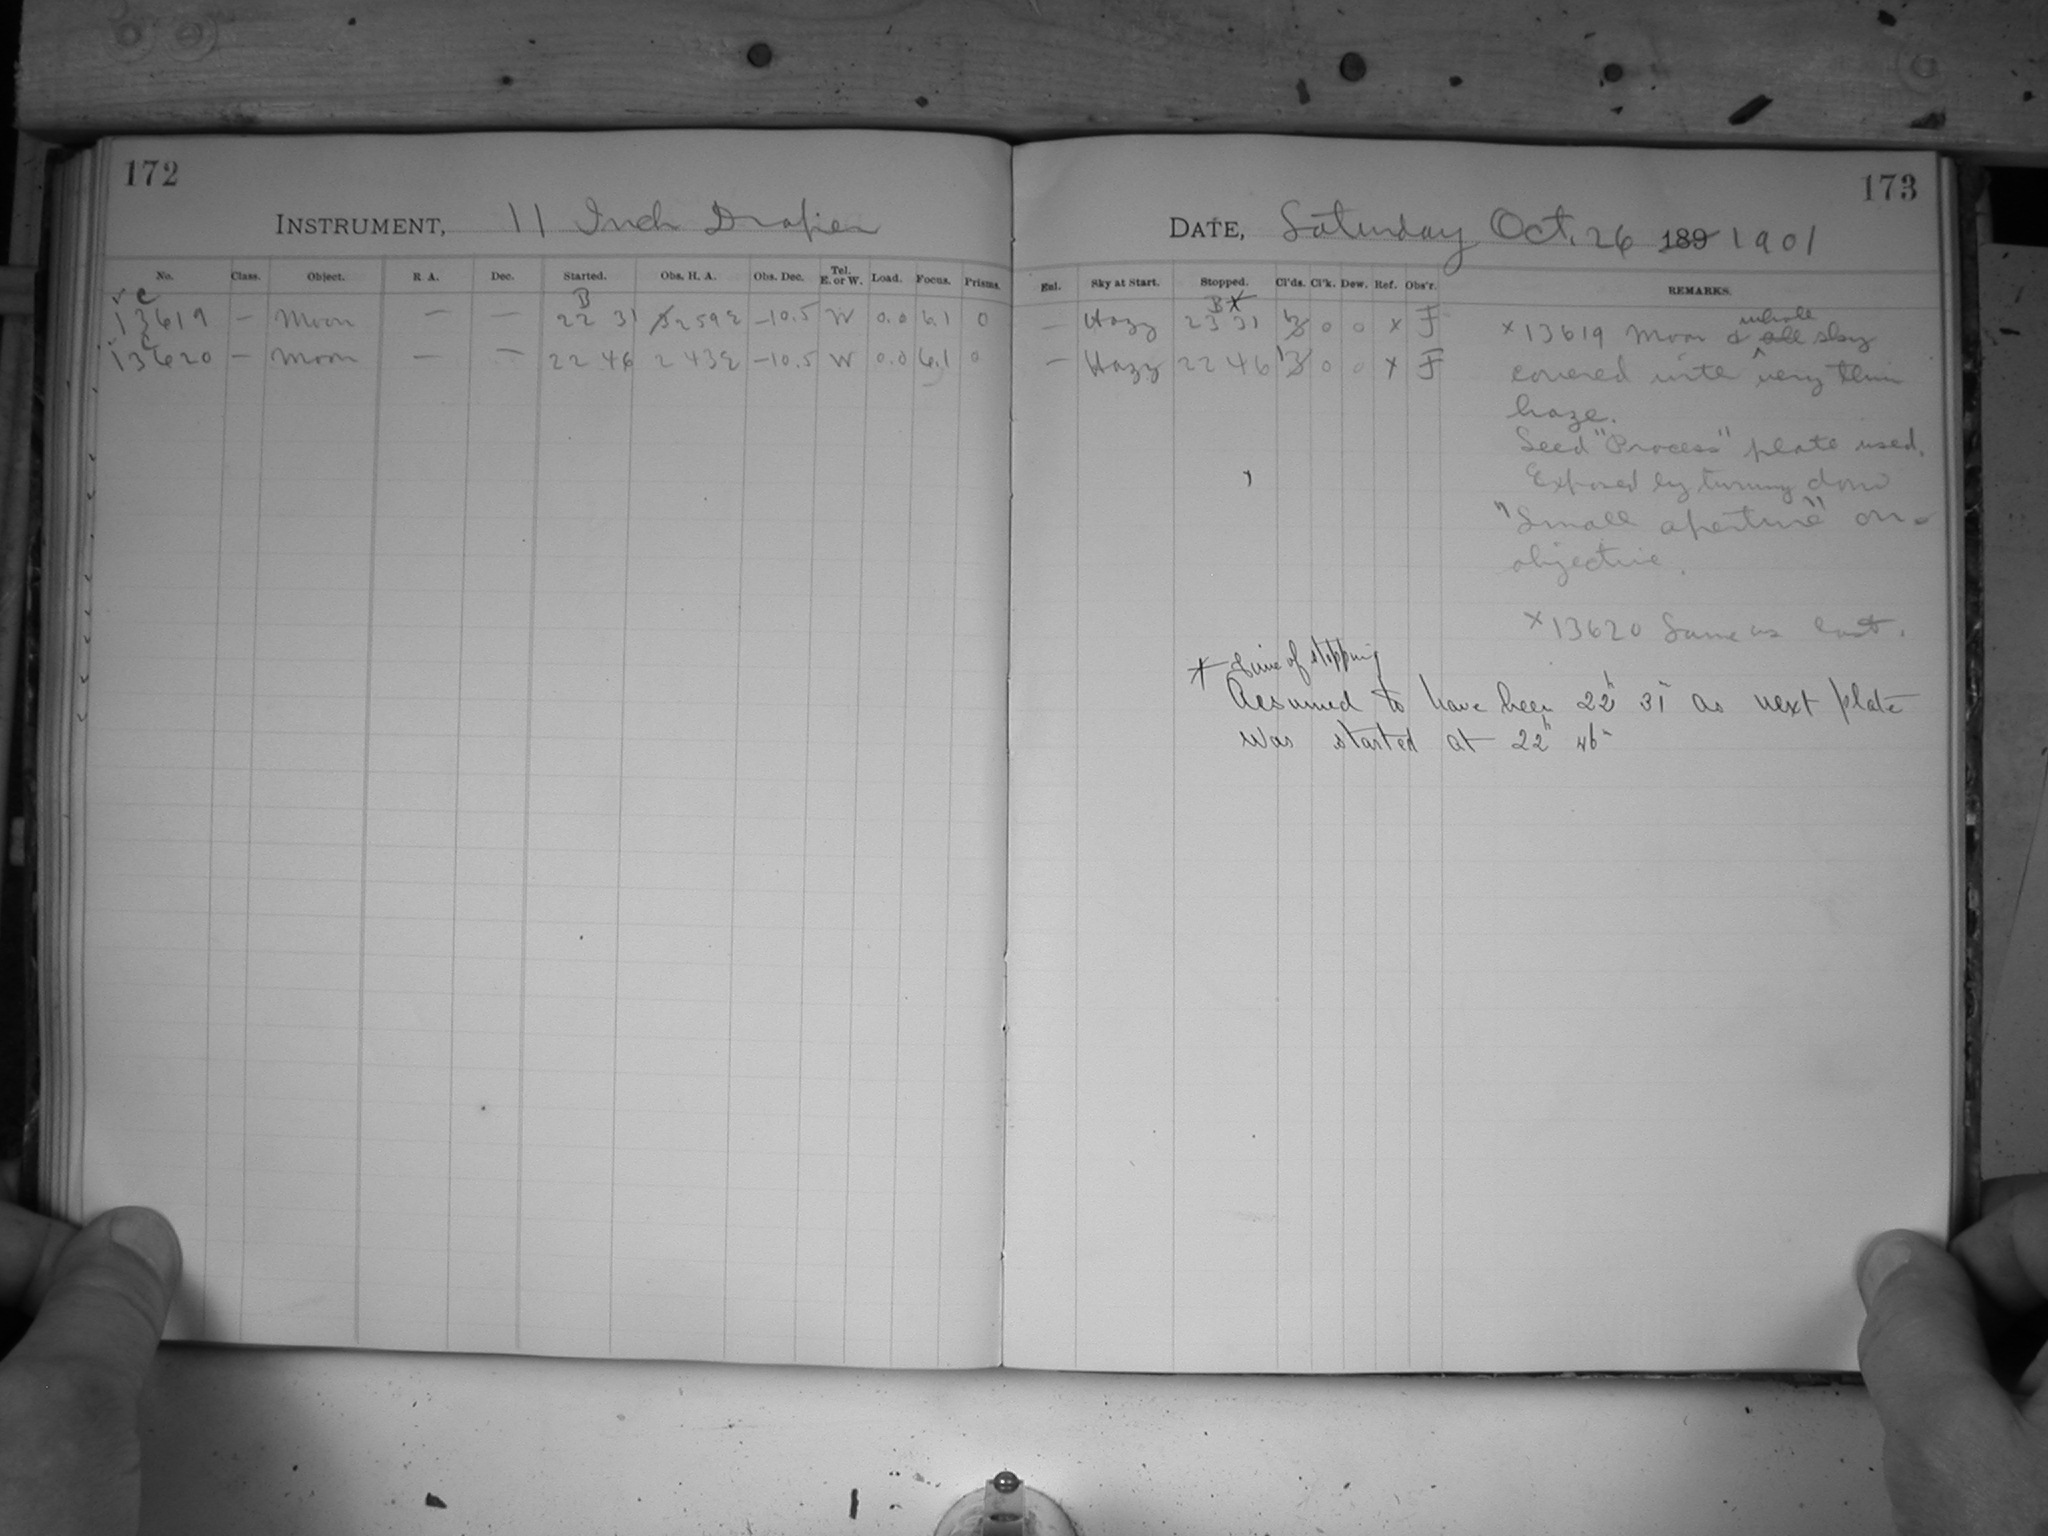 172
INSTRUMENT, 11 Inch Draper
No. Class. Object. R A. Dec. Started. Obs. H. A. Obs. Dec. Tel. E. or W. Load. Focus. Prisms.
B
13619 — Moon — — 22 31 259 E -10.5 W 0.0 6.1 0
13620 — Moon — — 22 46 2 43 E -10.5 W 0.0 6.1 0
173
DATE, Saturday Oct. 26 189 1901
Enl. Sky at Start. Stopped. Cl'ds. Cl'k. Dew. Ref. Obs'r. REMARKS.
B*
— Hazy 23 31 0 0 x F
— Hazy 22 46 0 0 x F
x 13619 Moon & all whole sky
covered with very thin
haze.
Seed "Process" plate used.
Exposed by turning down
"Small aperture" on
objective.
x 13620 Same as last.
* Time of stopping
Assumed to have been 22h 31m as next plate
was started at 22h 46m